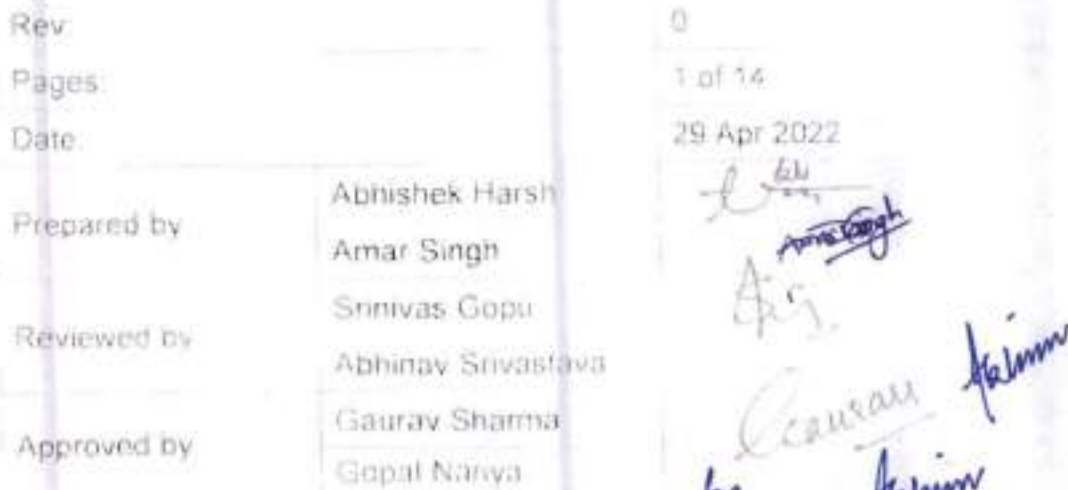 Rev: 0
Pages: 1 of 14
Date: 29 Apr 2022
Prepared by
Abhishek Harsh
Amar Singh Amar Singh
Reviewed by
Srinivas Gopu
Abhinav Srivastava
Approved by
Gaurav Sharma Gaurav
Gopal Nariya